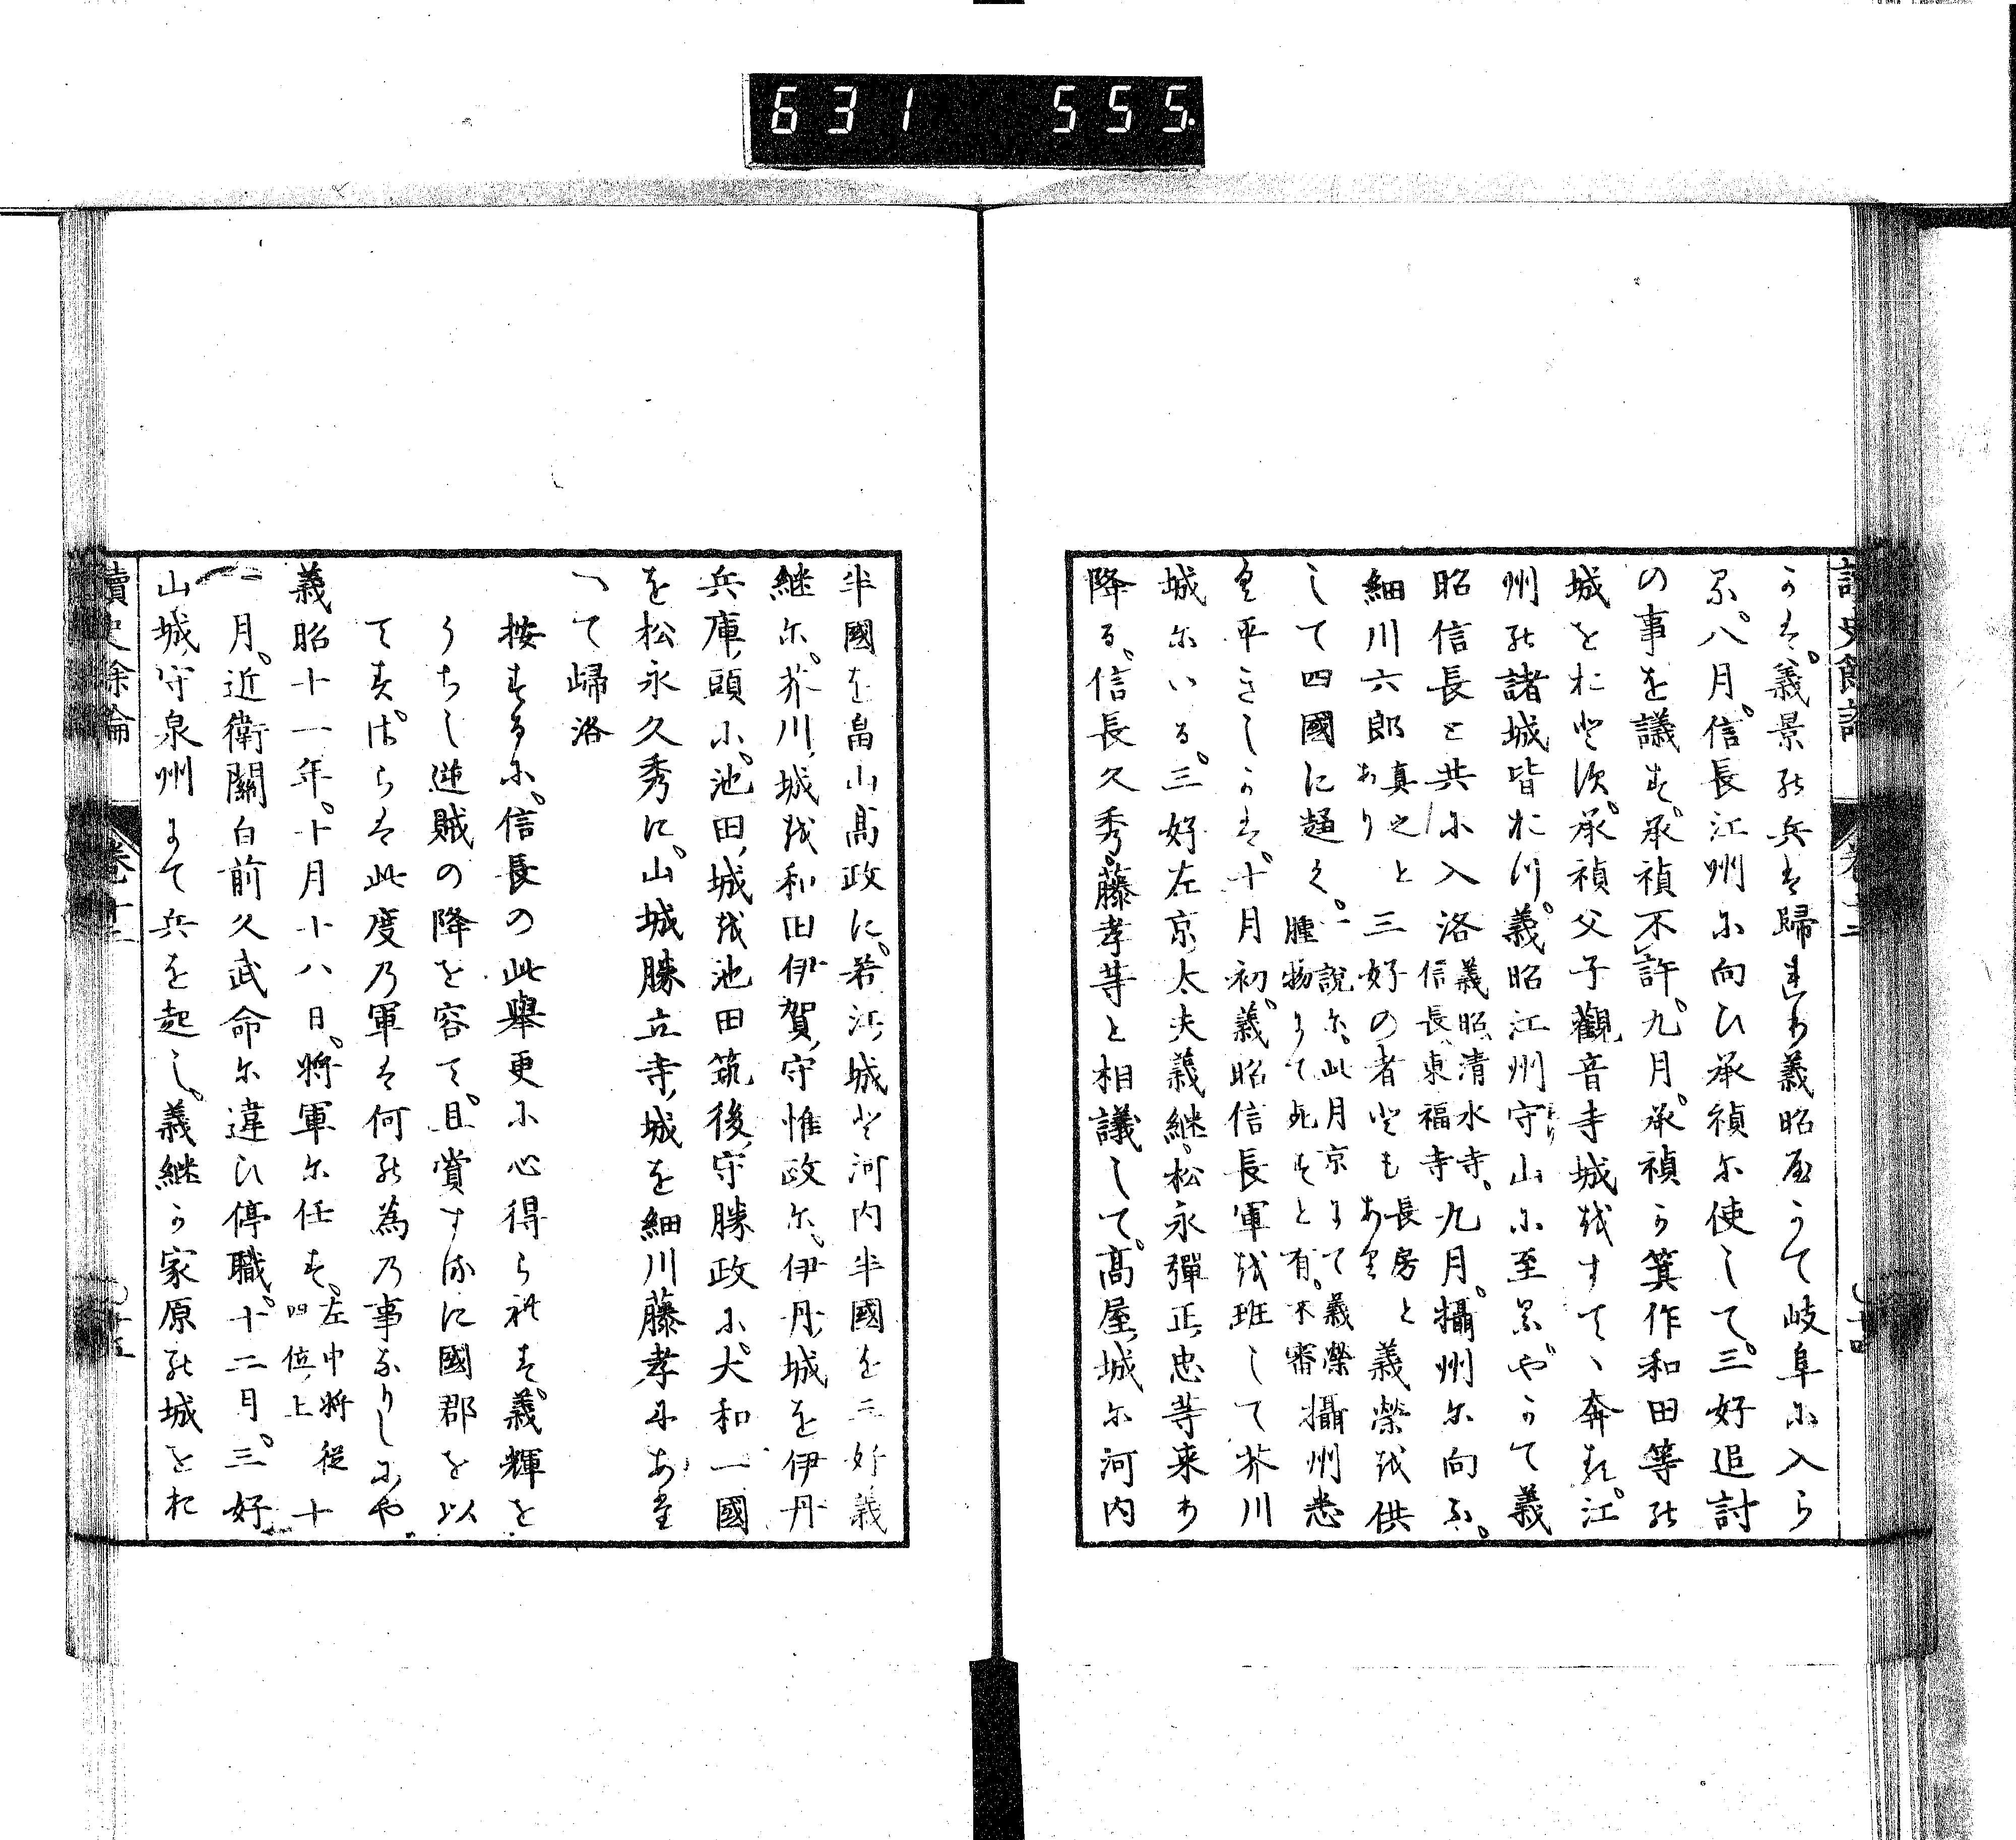 631 555
讀史餘論 卷十二
かば、義景の兵は歸れり義昭頓て岐阜に入ら
る。八月、信長江州に向ひ承禎に使して、三好追討
の事を議す、承禎不許。九月、承禎か箕作和田等の
城をおとす。承禎父子觀音寺城をすてゝ奔る、江
州の諸城皆おつ。義昭江州守山に至るやかて義
昭信長と共に入洛義昭、清水寺。信長、東福寺九月。攝州に向ふ。
細川六郎真之とあり三好の者とも長房とあり義榮を供
して四國に趣く。一説に、此月京にて義榮腫物にて死すと有。不審攝州悉
く平きしかは、十月初、義昭信長軍を班して芥川
城にいる。三好左京太夫義継、松永彈正忠等来り
降る、信長久秀藤孝等と相議して、高屋城に河内
半國を畠山高政に、若江城と河内半國を三好義
継に、芥川城を和田伊賀守惟政に、伊丹城を伊丹
兵庫頭に、池田城を池田筑後守勝政に、大和一國
を松永久秀に、山城勝立寺城を細川藤孝にあた
へて歸洛
按するに、信長の此舉更に心得られす、義輝を
うちし逆賊の降を容て、且賞するに國郡を以
てすはらは此度の軍は何の為の事なりしにや
義昭十一年。十月十八日、將軍に任す、左中將從四位上十
一月。近衛關白前久武命に違ひ停職。十二月。三好
山城守泉州にて兵を起し、義継か家原の城をお
讀史餘論 卷十二